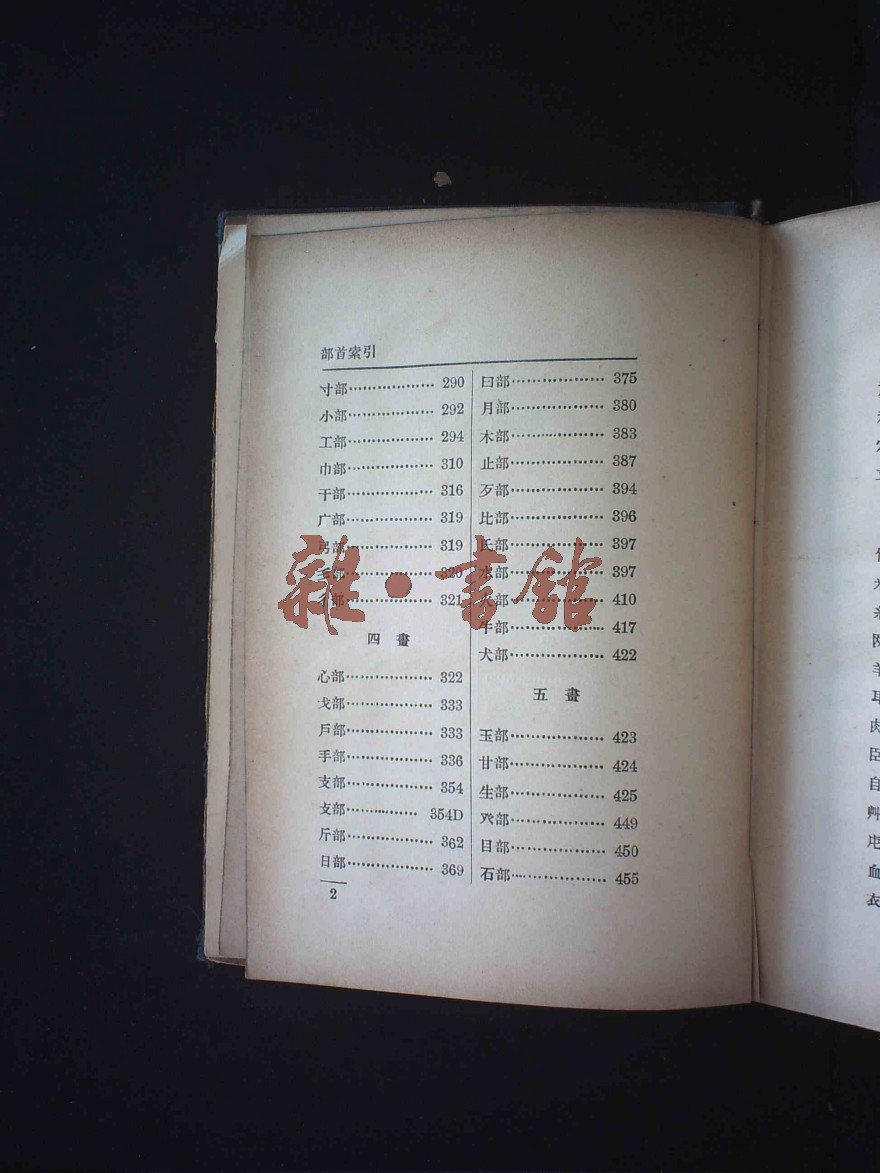 部首索引
寸部……………… 290
小部……………… 292
工部……………… 294
巾部……………… 310
干部……………… 316
广部……………… 319
弓部……………… 319
部……………… 320
部……………… 321
四 畫
心部……………… 322
戈部……………… 333
戶部……………… 333
手部……………… 336
支部……………… 354
攴部……………… 354D
斤部……………… 362
日部……………… 369
2
曰部……………… 375
月部……………… 380
木部……………… 383
止部……………… 387
歹部……………… 394
比部……………… 396
氏部……………… 397
水部……………… 397
火部……………… 410
牛部……………… 417
犬部……………… 422
五 畫
玉部……………… 423
甘部……………… 424
生部……………… 425
癶部……………… 449
目部……………… 450
石部……………… 455
雜·書館
羊
耳
肉
臣
自
艸
血
衣